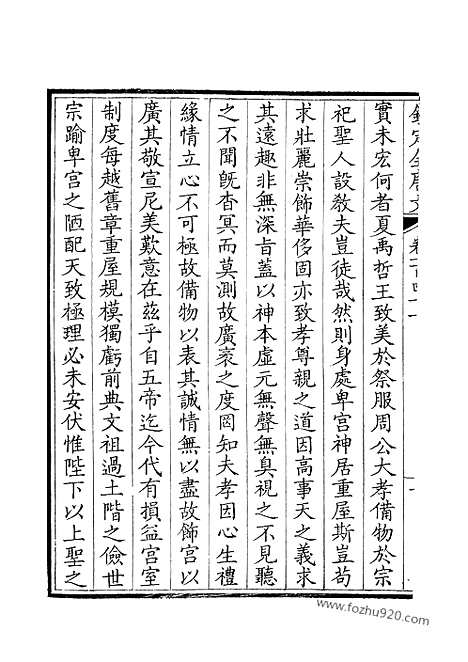 實未宏何者夏禹哲王致美於祭服周公大孝備物於宗
祀聖人設教夫豈徒哉然則身處卑宮神居重屋斯豈苟
求壯麗崇飾華侈固亦致孝尊親之道因高事天之義求
其遠趣非無深旨蓋以神本虛元無聲無臭視之不見聽
之不聞旣杳冥而莫測故廣袤之度罔知夫孝因心生禮
緣情立心不可極故備物以表其誠情無以盡故飾宮以
廣其敬宣尼美歎意在茲乎自五帝迄今代有損益宮室
制度每越舊章重屋規模獨虧前典文祖過土階之儉世
宗踰卑宮之陋配天致極理必未安伏惟陛下以上聖之
www.fozhu920.com